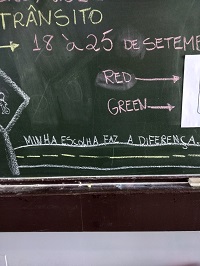 TRÂNSITO
→ 18 à 25 DE SETEM
RED →
GREEN →
MINHA ESCOLHA FAZ A DIFERENÇA.